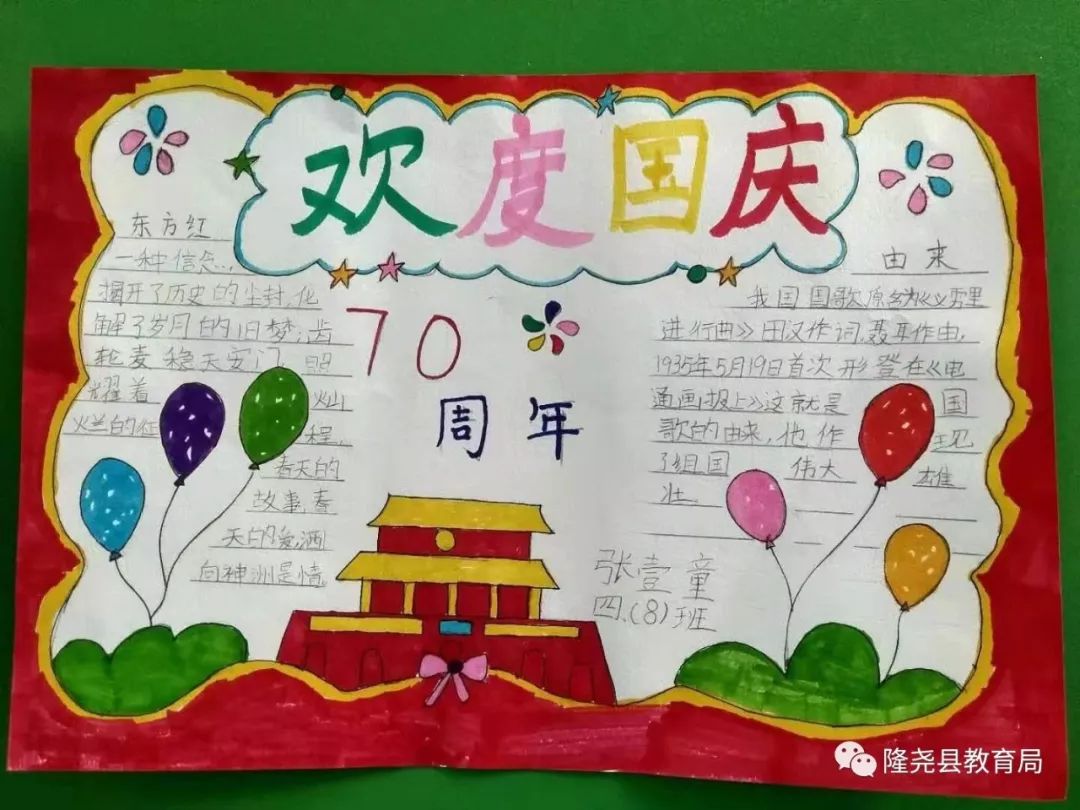 欢度国庆
东方红
一种信念,
揭开了历史的尘封,化
解了岁月的旧梦;齿
轮麦稳天安门,照
耀着 灿
火兰的征 程,
春天的
故事,春
天的爱,洒
向神洲是情
70
周年
由来
我国国歌原名为《义勇军
进行曲》田汉作词,聂耳作曲,
1935年5月19日首次形登在《电
通画报上》这就是 国
歌的由来,他作 现
了组国 伟大 雄
壮.
张壹童
四.(8)班
隆尧县教育局